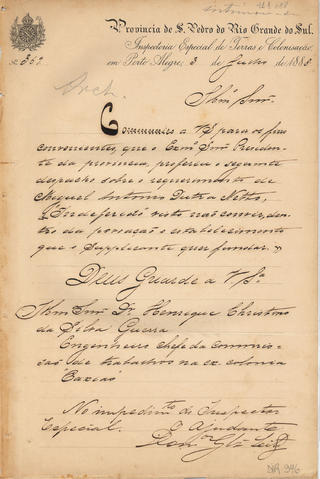 Provincia de S. Pedro do Rio Grande do Sul.
Inspectoria Especial de Terras e Colonisação,
em Porto Alegre, 3 de Julho de 1885
Arch.
Illmº Snr.
Communico a VSª para os fins
convenientes, que o Exmº Snr Presiden-
te da provincia, proferiu o seguinte
despacho sobre o requerimento de
Miguel Antonio Dutra Netto,
"Indeferido visto não convir, den-
tro da povoação o estabelecimento
que o Supplicante quer fundar."
Deus Guarde a VSª
Illmº Snr Dr. Henrique Christino
da Silva Guerra
Engenheiro Chefe da Commis-
são de trabalhos na ex colonia
Caxias
No impedimto do Inspector
Especial.
O Ajudante
DIR. 946